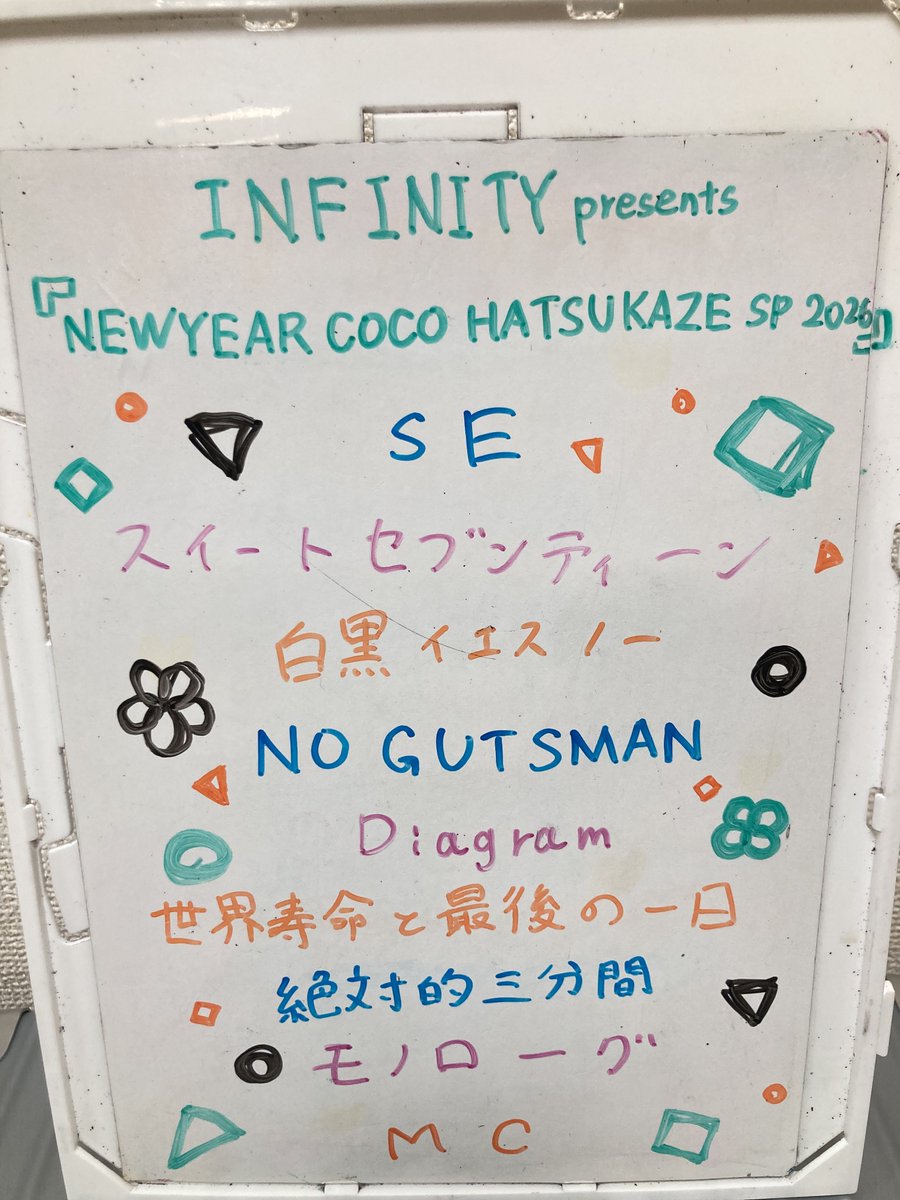 INFINITY presents
『NEWYEAR COCO HATSUKAZE SP 2026』
SE
スイートセブンティーン
白黒イエスノー
NO GUTSMAN
Diagram
世界寿命と最後の一日
絶対的三分間
モノローグ
MC